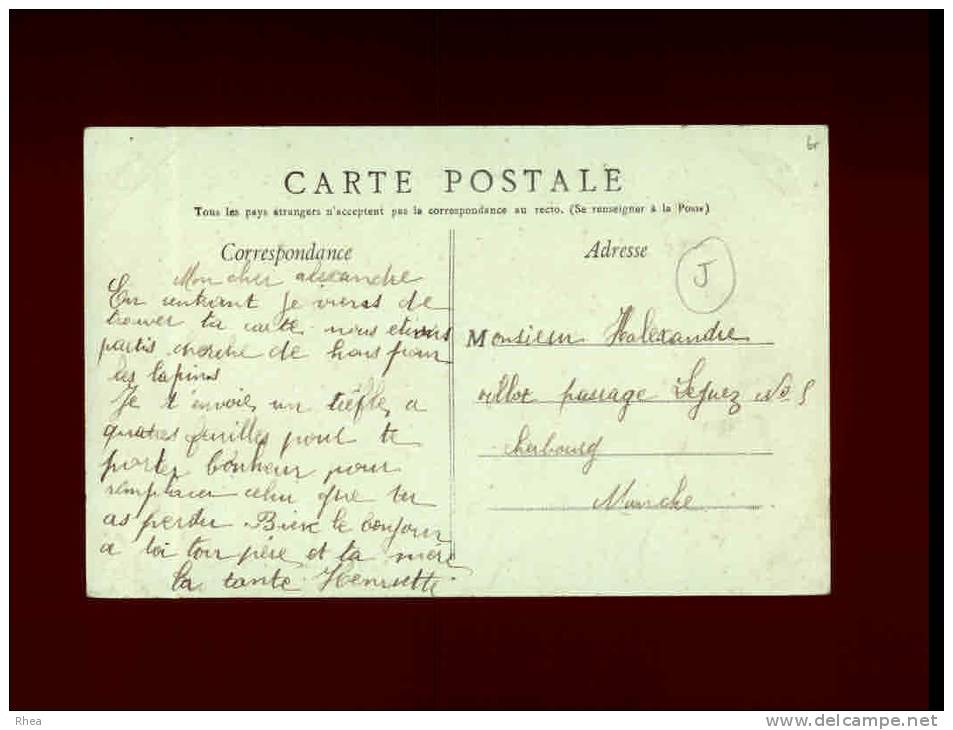 br
CARTE POSTALE
Tous les pays étrangers n'acceptent pas la correspondance au recto. (Se renseigner à la Poste)
Correspondance
Mon cher alexandre
En rentrant Je viens de
trouver ta carte nous etions
partis cherche de hors pour
les lapins
Je t'envoie un trèfles a
quatres feuilles pour te
porter bonheur pour
remplacer celui que tu
as perdu. Bien le bonjour
a toi ton père et ta mère
ta tante Henriette
Adresse
J
Monsieur Halexandre
passage No 5
Cherbourg
Manche
Rhea
www.delcampe.net